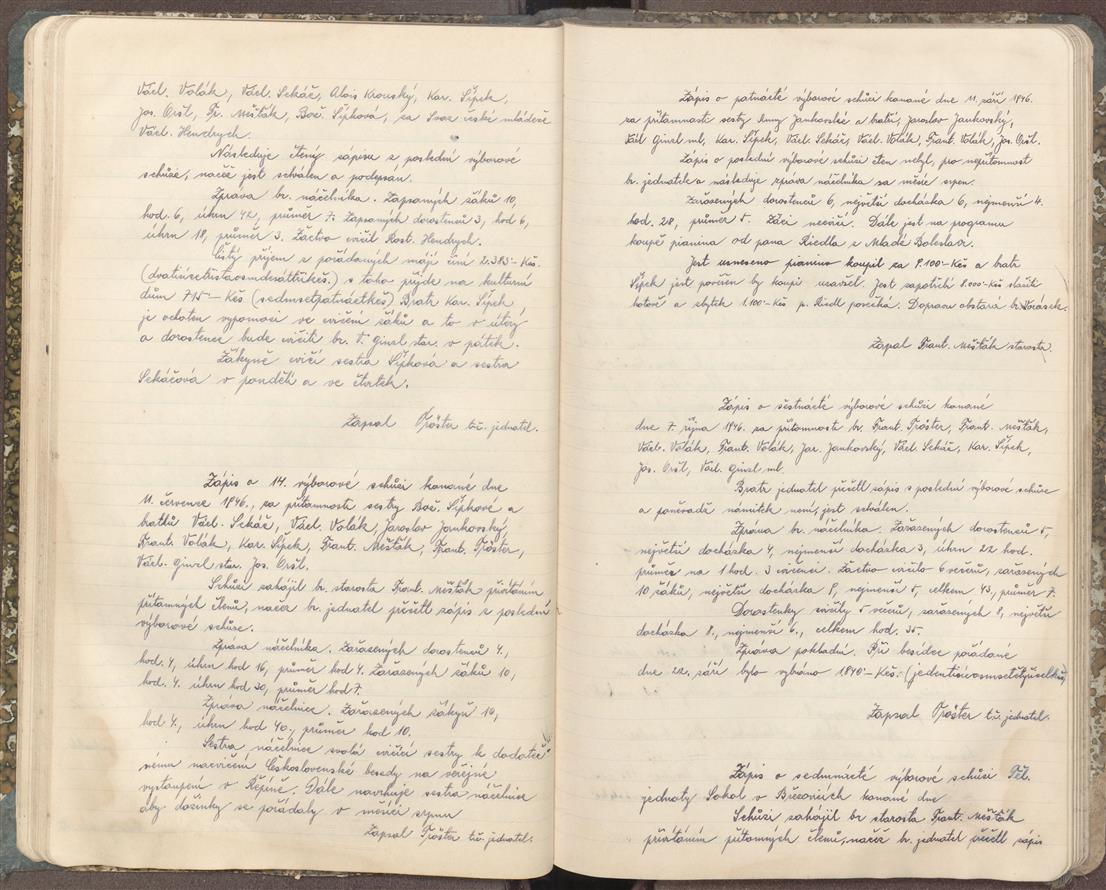 Václ. Volák, Václ. Sekáč, Alois Kronský, Kar. Šípek,
Jos. Oršl, Fr. Mešťák, Bož. Šípková, za Svaz české mládeže
Václ. Hendrych.
Následuje čtený zápisu z poslední výborové
schůze, načež jest schválen a podepsán.
Zpráva br. náčelníka. Zapsaných žáků 10,
hod. 6, úhrn 42, průměr 7. Zapsaných dorostenců 3, hod 6,
úhrn 18, průměr 3. Žactvo cvičil Rost. Hendrych.
Čistý příjem z pořádaných májí činí 2.383 Kčs.
(dvatisícetřistaosmdesáttřikčs.) z toho přijde na kulturní
dům 715 — Kčs (sedmsetpatnáctkčs) Bratr Kar. Šípek
je ochoten vypomoci ve cvičení žáků a to v úterý
a dorostence bude cvičiti br. V. Ginzl star. v pátek.
Žákyně cvičí sestra Šípková a sestra
Sekáčová v pondělí a ve čtvrtek.
Zapsal Tröster t.č. jednatel.
Zápis o 14. výborové schůzi konané dne
11. července 1946., za přítomnosti sestry Bož. Šípkové a
bratrů Václ. Sekáč, Václ. Volák, Jaroslav Jankovský,
Frant. Volák, Kar. Šípek, Frant. Mešťák, Frant. Tröster,
Václ. Ginzl star. Jos. Oršl.
Schůzi zahájil br. starosta Frant. Mešťák přivítáním
přítomných členů, načež br. jednatel přečetl zápis z poslední
výborové schůze.
Zpráva náčelníka. Zařazených dorostenců 4.,
hod. 4, úhrn hod 16, průměr hod 4. Zařazených žáků 10,
hod. 4. úhrn hod 30, průměr hod 7.
Zpráva náčelnice. Zařazených žákyň 10,
hod 4., úhrn hod 40., průměr hod 10.
Sestra náčelnice svolá cvičící sestry k dodateč
nému nacvičení Československé besedy na veřejné
vystoupení v Řepíně. Dále navrhuje sestra náčelnice
aby dožínky se pořádaly v měsíci srpnu
Zapsal Tröster t.č. jednatel.
Zápis o patnácté výborové schůzi konané dne 11. září 1946.
za přítomnosti sestry Anny Jankovské a bratří, Jaroslav Jankovský,
Václ Ginzl ml, Kar. Šípek, Václ. Sekáč, Václ. Volák, Frant. Volák, Jos. Oršl.
Zápis o poslední výborové schůzi čten nebyl, pro nepřítomnost
br. jednatele a následuje zpráva náčelníka za měsíc srpen.
Zařazených dorostenců 6, největší docházka 6, nejmenší 4.
hod. 28, průměr 5. Žáci necvičí. Dále jest na pogramu
koupě pianina od pana Riedla z Mladé Boleslavi.
Jest usneseno pianino koupit za 9.100 — Kčs a bratr
Šípek jest pověřen by koupi uzavřel. Jest zapotřebí 8.000 — Kčs složiti
hotově a zbytek 1.100 — Kčs p. Riedl posečká. Dopravu obstará br. Vorásek.
Zapal Frant. Mešťák starosta.
Zápis o šestnácté výborové schůzi konané
dne 7. října 1946. za přítomnost br. Frant. Tröster, Frant. Mešťák,
Václ. Volák, Frant. Volák, Jar. Jankovský, Václ. Sekáč, Kar. Šípek,
Jos. Oršl, Václ. Ginzl ml.
Bratr jednatel přečetl zápis s poslední výborové schůze
a poněvadž námitek není, jest schválen.
Zpráva br. náčelníka. Zařazených dorostenců 5,
největší docházka 4, nejmenší docházka 3, úhrn 22 hod.
průměr na 1 hod. 3 cvičenci. Žactvo cvičilo 6 večerů, zařazených
10 žáků, největší docházka 9, nejmenší 5, celkem 43, průměr 7.
Dorostenky cvičily 5 večerů, zařazených 8, největší
docházka 8., nejmenší 6., celkem hod. 35.
Zpráva pokladní. Při besídce pořádané
dne 22. září bylo vybráno 1.840 — Kčs. (jedentisícosmsetčtyřicetkčs)
Zapsal Tröster t.č. jednatel.
Zápis o sedmnácté výborové schůzi Těl.
jednoty Sokol v Březovicích konané dne
Schůzi zahájil br starosta Frant. Mešťák
přivítáním přítomných členů, načež br. jednatel přečetl zápis